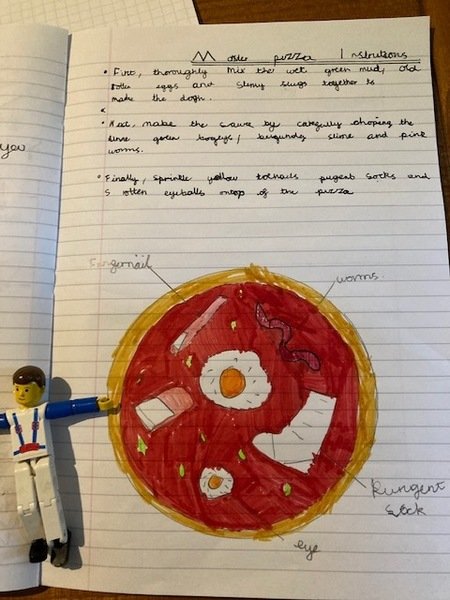 Monster pizza Instructions
• First, thoroughly mix the wet green mud, old
rotten eggs and slimy slugs together to
make the dogh.
• Next make the sauce by carefully choping the
green bogeys, burgundy slime and pink
worms.
• Finally, sprinkle yellow toenails pugent socks and
5 rotten eyeballs ontop of the pizza
you
Fingernail
worms
Pungent
Sock
eye